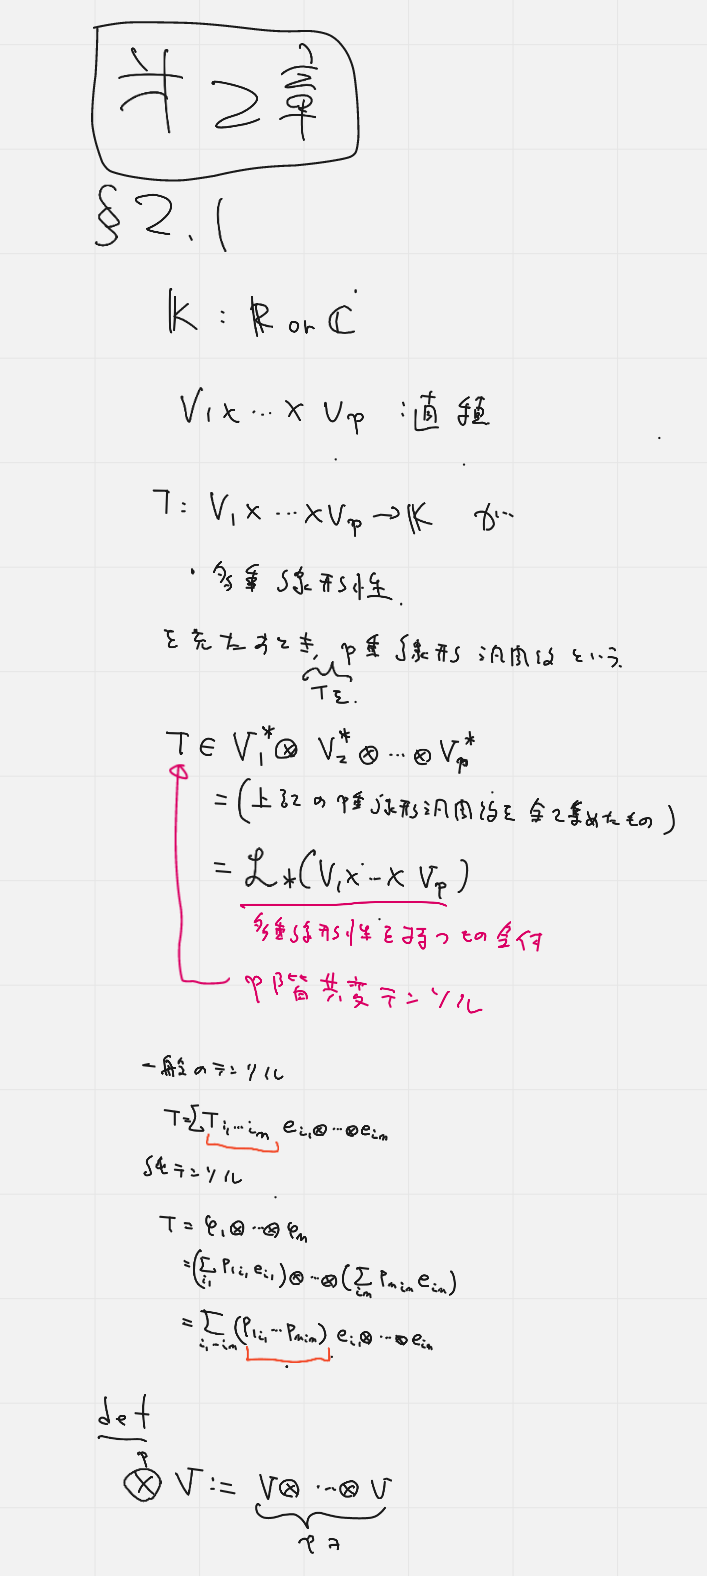 第2章
§2.1
𝕂 : ℝ or ℂ
V₁×…×Vₚ :直積
T: V₁×…×Vₚ→𝕂 が…
・多重線形性.
を充たすとき, p重線形汎関数という.
Tを.
T∈V₁*⊗V₂*⊗…⊗Vₚ*
=(上記のp重線形汎関数を全て集めたもの)
=ℒ*(V₁×…×Vₚ)
多重線形性を持つもの全体
p階共変テンソル
一般のテンソル
T=ΣT_{i₁…i_m} e_{i₁}⊗…⊗e_{i_m}
純テンソル
T=φ₁⊗…⊗φ_m
=(Σ_{i₁} P_{1i₁}e_{i₁})⊗…⊗(Σ_{i_m} P_{mi_m}e_{i_m})
=Σ_{i₁…i_m}(P_{1i₁}…P_{mi_m}) e_{i₁}⊗…⊗e_{i_m}
def
⊗^p V:=V⊗…⊗V
pコ